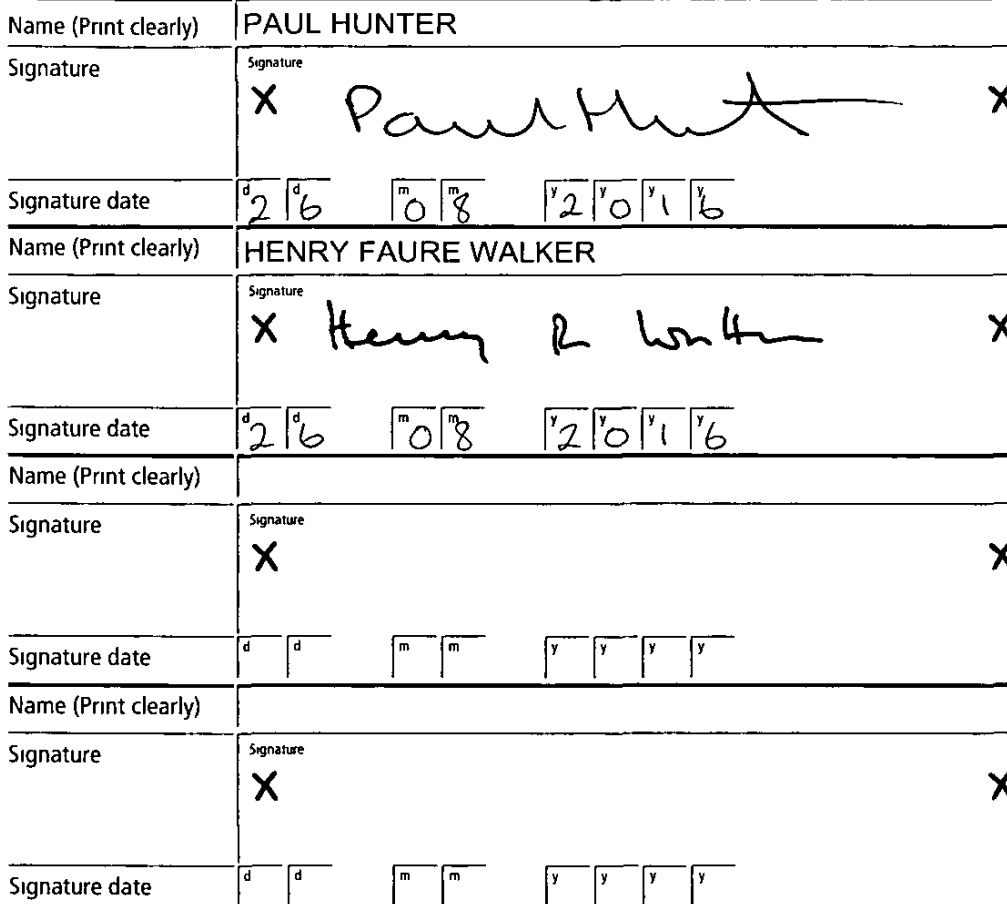 Name (Print clearly) PAUL HUNTER
Signature Signature
X Paul Hunt X
Signature date d2 d6 m0 m8 y2 y0 y1 y6
Name (Print clearly) HENRY FAURE WALKER
Signature Signature
X Henry R X
Signature date d2 d6 m0 m8 y2 y0 y1 y6
Name (Print clearly)
Signature Signature
X X
Signature date d d m m y y y y
Name (Print clearly)
Signature Signature
X X
Signature date d d m m y y y y